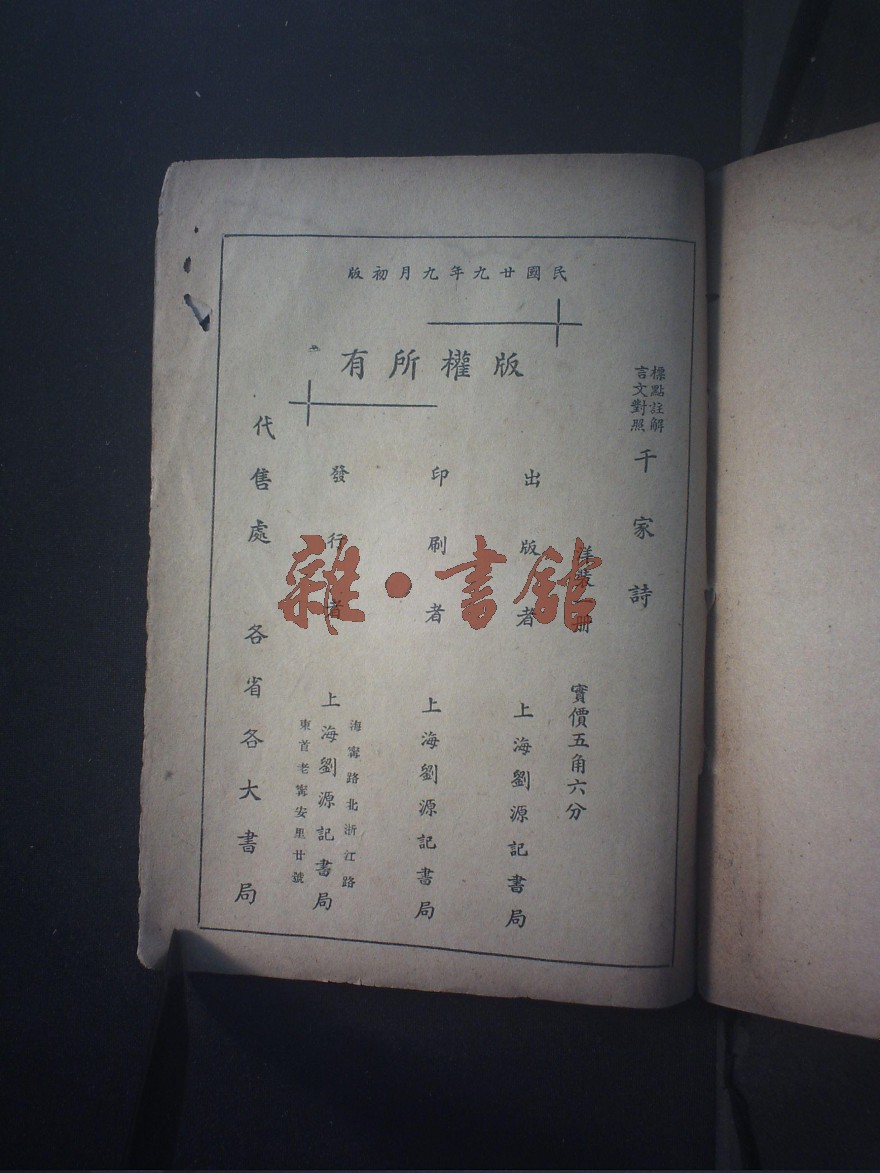 民國廿九年九月初版
版權所有
標點註解
言文對照
千家詩
洋裝 册
實價五角六分
出版者 上海劉源記書局
印刷者 上海劉源記書局
發行者 上海劉源記書局
海寗路北浙江路
東首老寗安里廿號
代售處 各省各大書局
雜·書館